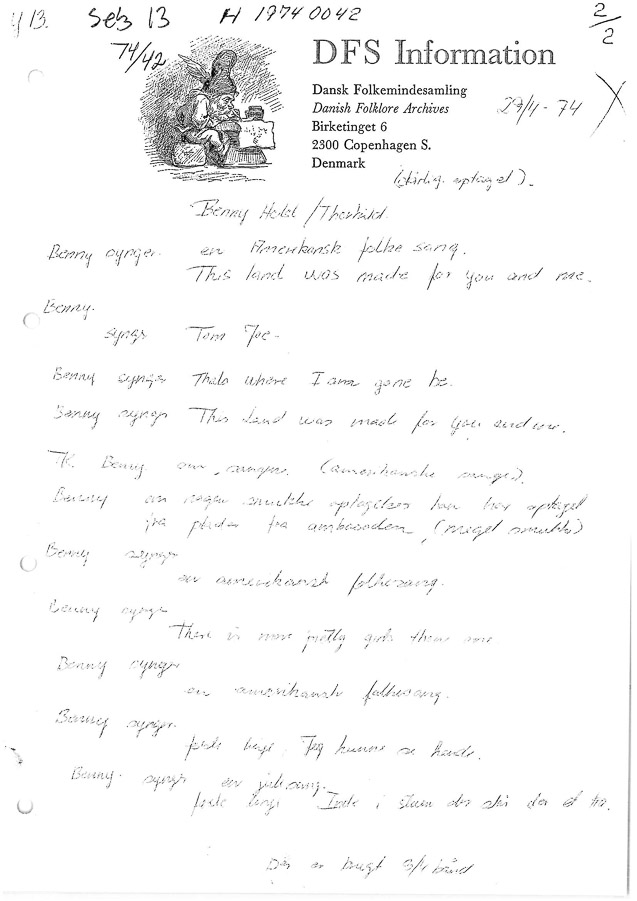 Seb 13 H 1974 0042 2/2
74/42
DFS Information
Dansk Folkemindesamling
Danish Folklore Archives
Birketinget 6
2300 Copenhagen S.
Denmark
29/11-74
optaget).
Benny Holst /
Benny synger en Amerikansk folke sang.
This land was made for you and me.
Benny.
synger Tom Joe
Benny synger Thats where I am gone be.
Benny synger This land was made for you and me.
Benny om sangene. (amerikanske sange).
Benny om nogen smukke optagelser han har optaget
fra plader fra ambasaden (meget smukke)
Benny synger
en amerikansk folkesang.
Benny synger
There is more pretty girls than one
Benny synger
en amerikansk folkesang.
Benny synger.
Jeg kunne se hende.
Benny synger en julesang.
Inde i stuen der står der et træ.
Der er brugt 3/4 bånd